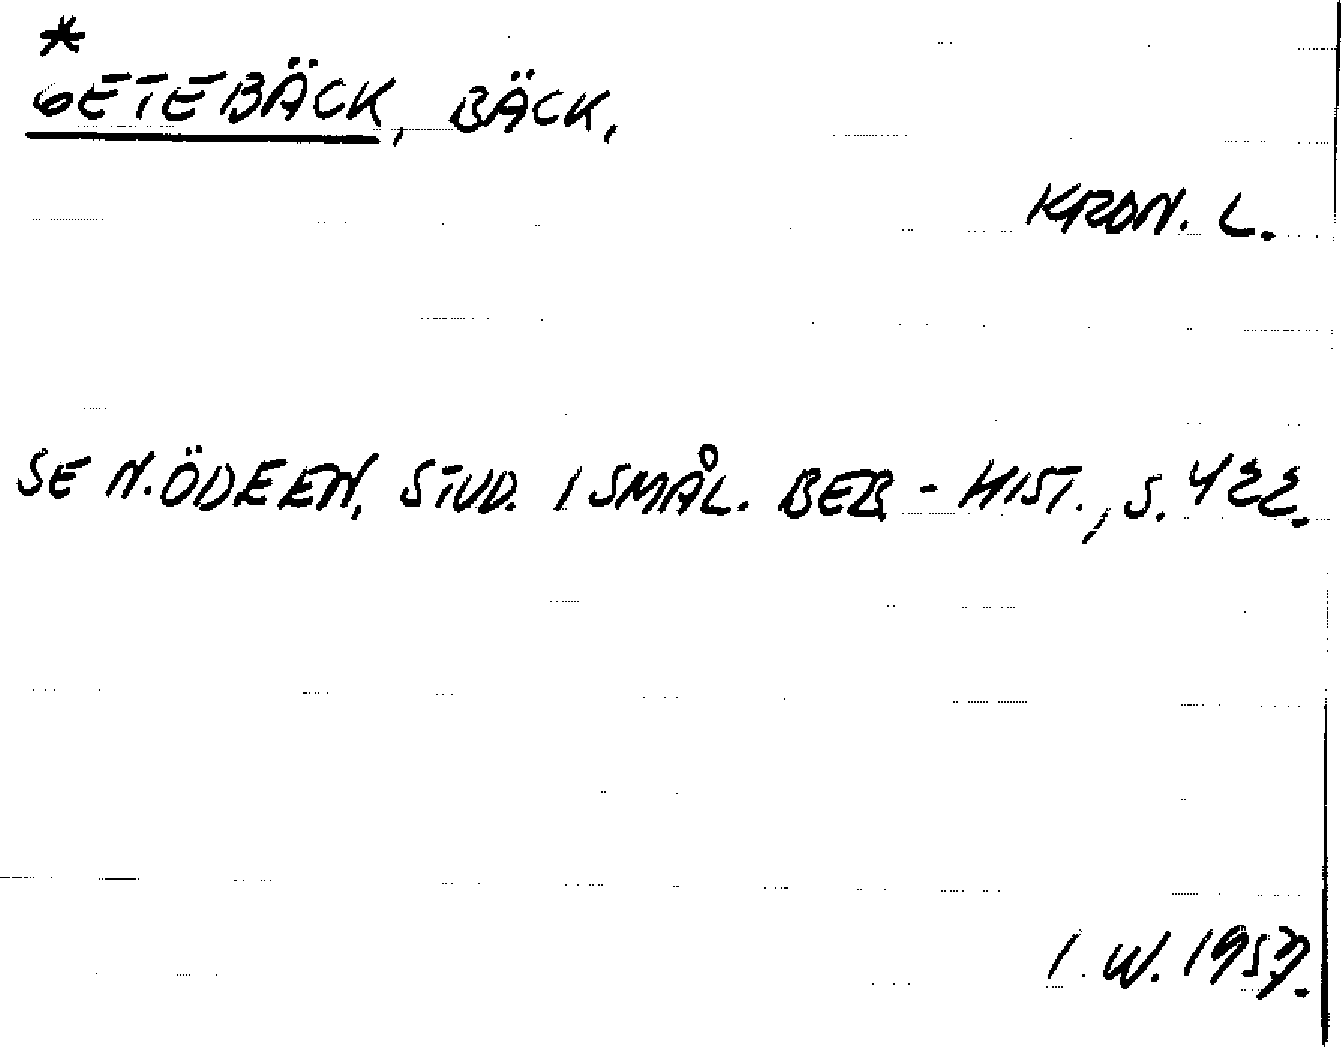 *
GETEBÄCK, BÄCK,
KRON. L.
SE N. ÖDEEN, STUD. I SMÅL. BEB - HIST., S. 422.
I. W. 1957.